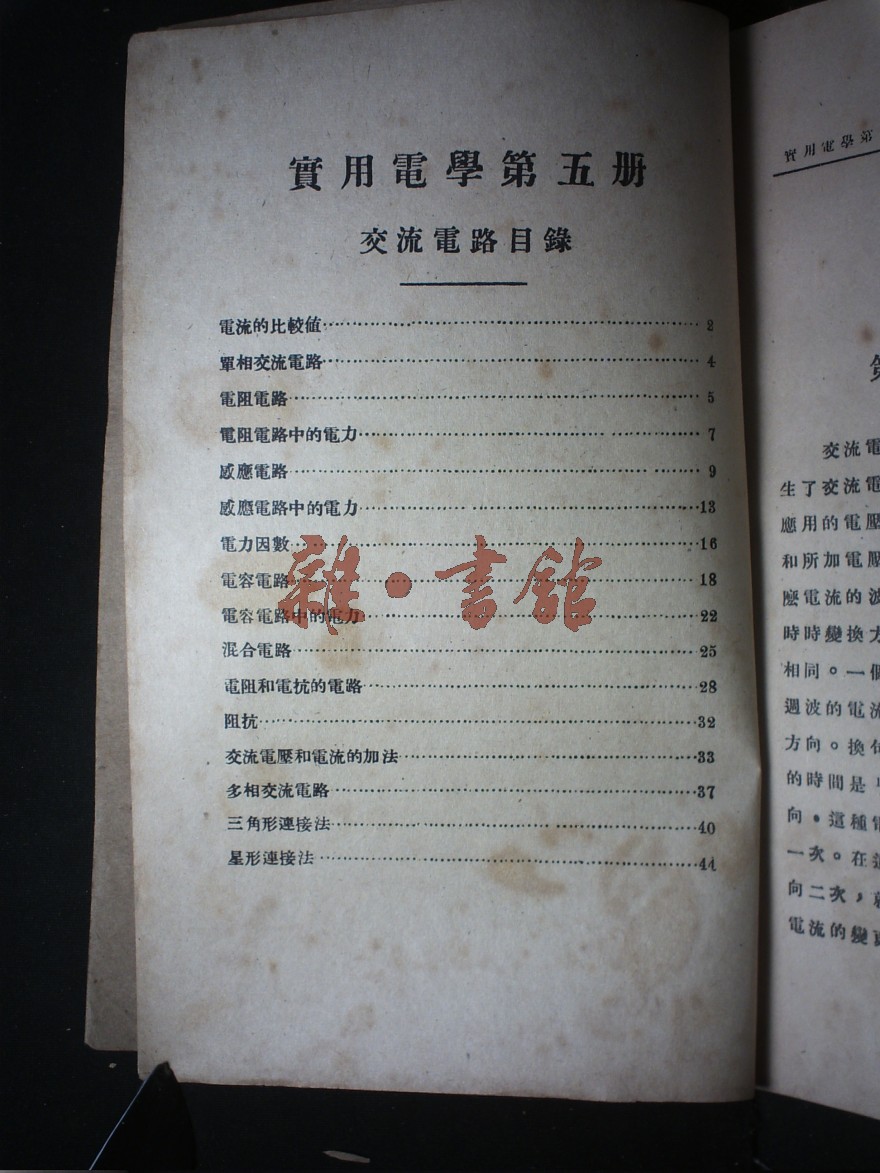 實用電學第五册
交流電路目錄
電流的比較値 2
單相交流電路 4
電阻電路 5
電阻電路中的電力 7
感應電路 9
感應電路中的電力 13
電力因數 16
電容電路 18
電容電路中的電力 22
混合電路 25
電阻和電抗的電路 28
阻抗 32
交流電壓和電流的加法 33
多相交流電路 37
三角形連接法 40
星形連接法 44
雜·書館
實用電學第
第
交流電
生了交流電
應用的電壓
和所加電壓
麼電流的波
時時變換方
相同。一個
過波的電流
方向。換句
的時間是
向。這種電
一次。在這
向二次,就
電流的變更